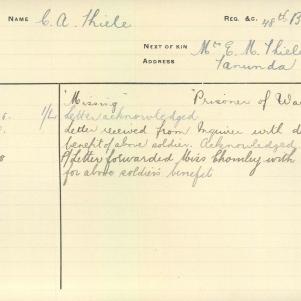 NAME C. A. Thiele REG. &C. 48th B
NEXT OF KIN Mrs E. M. Thiele
ADDRESS Tanunda
"Missing" "Prisoner of Wa
6. 1/2 Letter acknowledged
Letter received from Inquirer with d
benefit of above soldier. Acknowledged
8 A letter forwarded Miss Chomley with
for above soldier's benefit